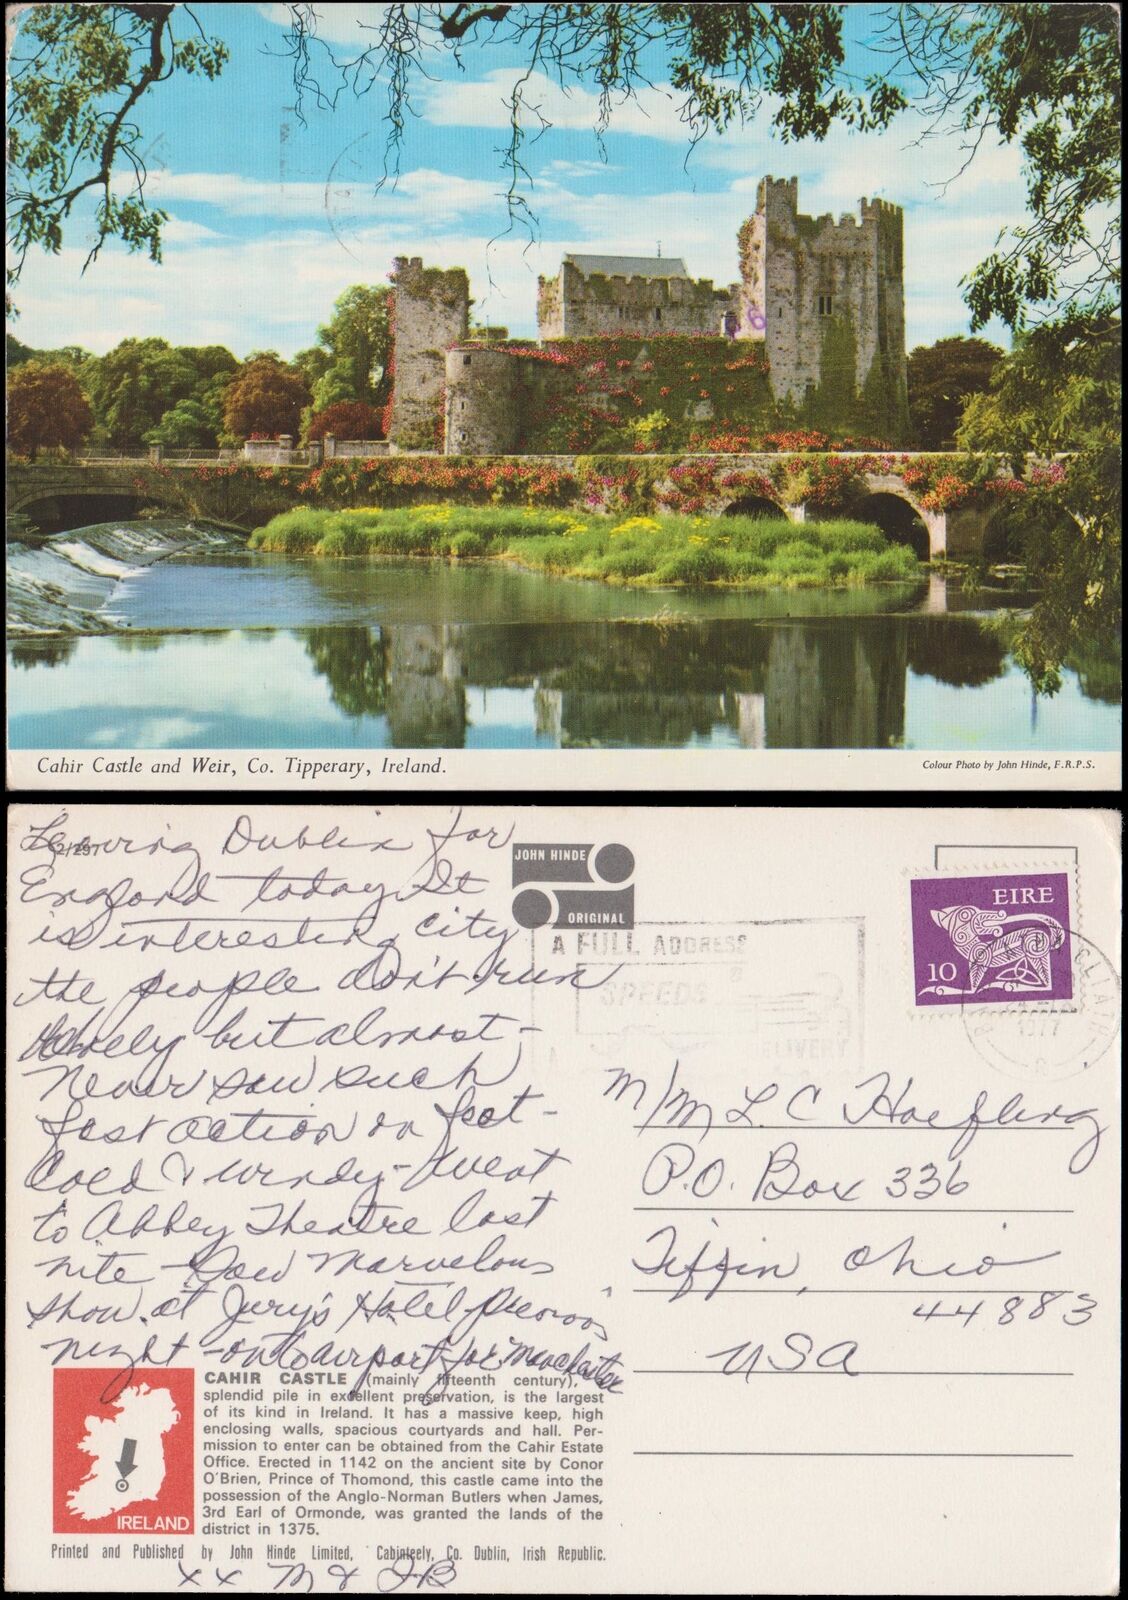 Cahir Castle and Weir, Co. Tipperary, Ireland.
Colour Photo by John Hinde, F.R.P.S.
2/297
Leaving Dublin for
England today. It
is interesting city
the people don't run
but almost-
Never saw such
fast action on foot-
Cold & windy - went
to Abbey Theatre last
nite - Saw Marvelous
show at Jury's Hotel previous
night - on to airport for Manchester
JOHN HINDE
ORIGINAL
A FULL ADDRESS
SPEEDS
DELIVERY
EIRE
10
CLIATH
1977
M/M L. C Hoefling
P.O. Box 336
Tiffin, Ohio
44883
USA
IRELAND
CAHIR CASTLE (mainly fifteenth century), a
splendid pile in excellent preservation, is the largest
of its kind in Ireland. It has a massive keep, high
enclosing walls, spacious courtyards and hall. Per-
mission to enter can be obtained from the Cahir Estate
Office. Erected in 1142 on the ancient site by Conor
O'Brien, Prince of Thomond, this castle came into the
possession of the Anglo-Norman Butlers when James,
3rd Earl of Ormonde, was granted the lands of the
district in 1375.
Printed and Published by John Hinde Limited, Cabinteely, Co. Dublin, Irish Republic.
xx M & JB